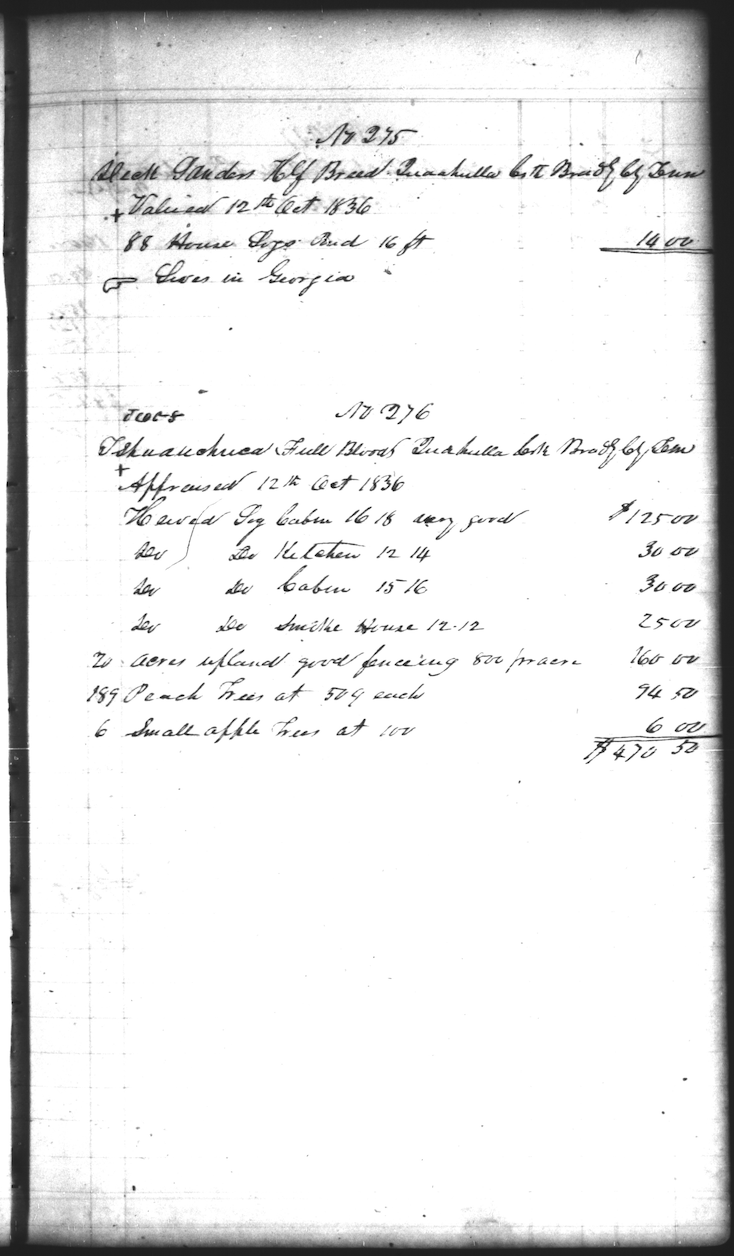 No 275
Dick Sanders Hlf Breed Quahulla Crk Brad Cty Tenn
+ Valued 12th Oct 1836
88 House Logs Rud 16 ft 14 00
☞ Lives in Georgia
No 276
Full Blood Quahulla Crk Brad Cty Tenn
+ Appraised 12th Oct 1836
Hewed Log Cabin 16 18 very good $125 00
Do Do Kitchen 12 14 30 00
Do Do Cabin 15 16 30 00
Do Do Smoke House 12.12 25 00
20 acres upland good fenceing 800 pr acre 160 00
189 Peach Trees at 50¢ each 94 50
6 Small apple Trees at 100 6 00
$470 50